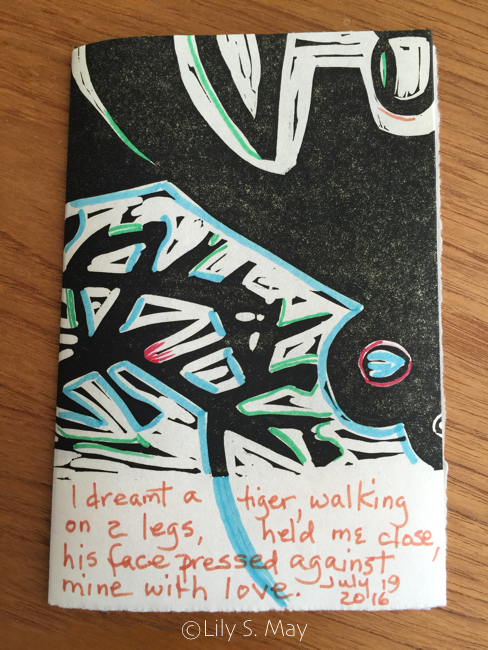 I dreamt a tiger, walking
on 2 legs, held me close,
his face pressed against
mine with love. July 19
2016
©Lily S. May